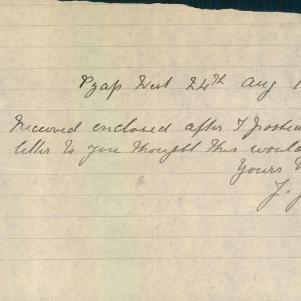 West 24th Aug 1
Received enclosed after I posted
letter to you thought this would
Yours
J.